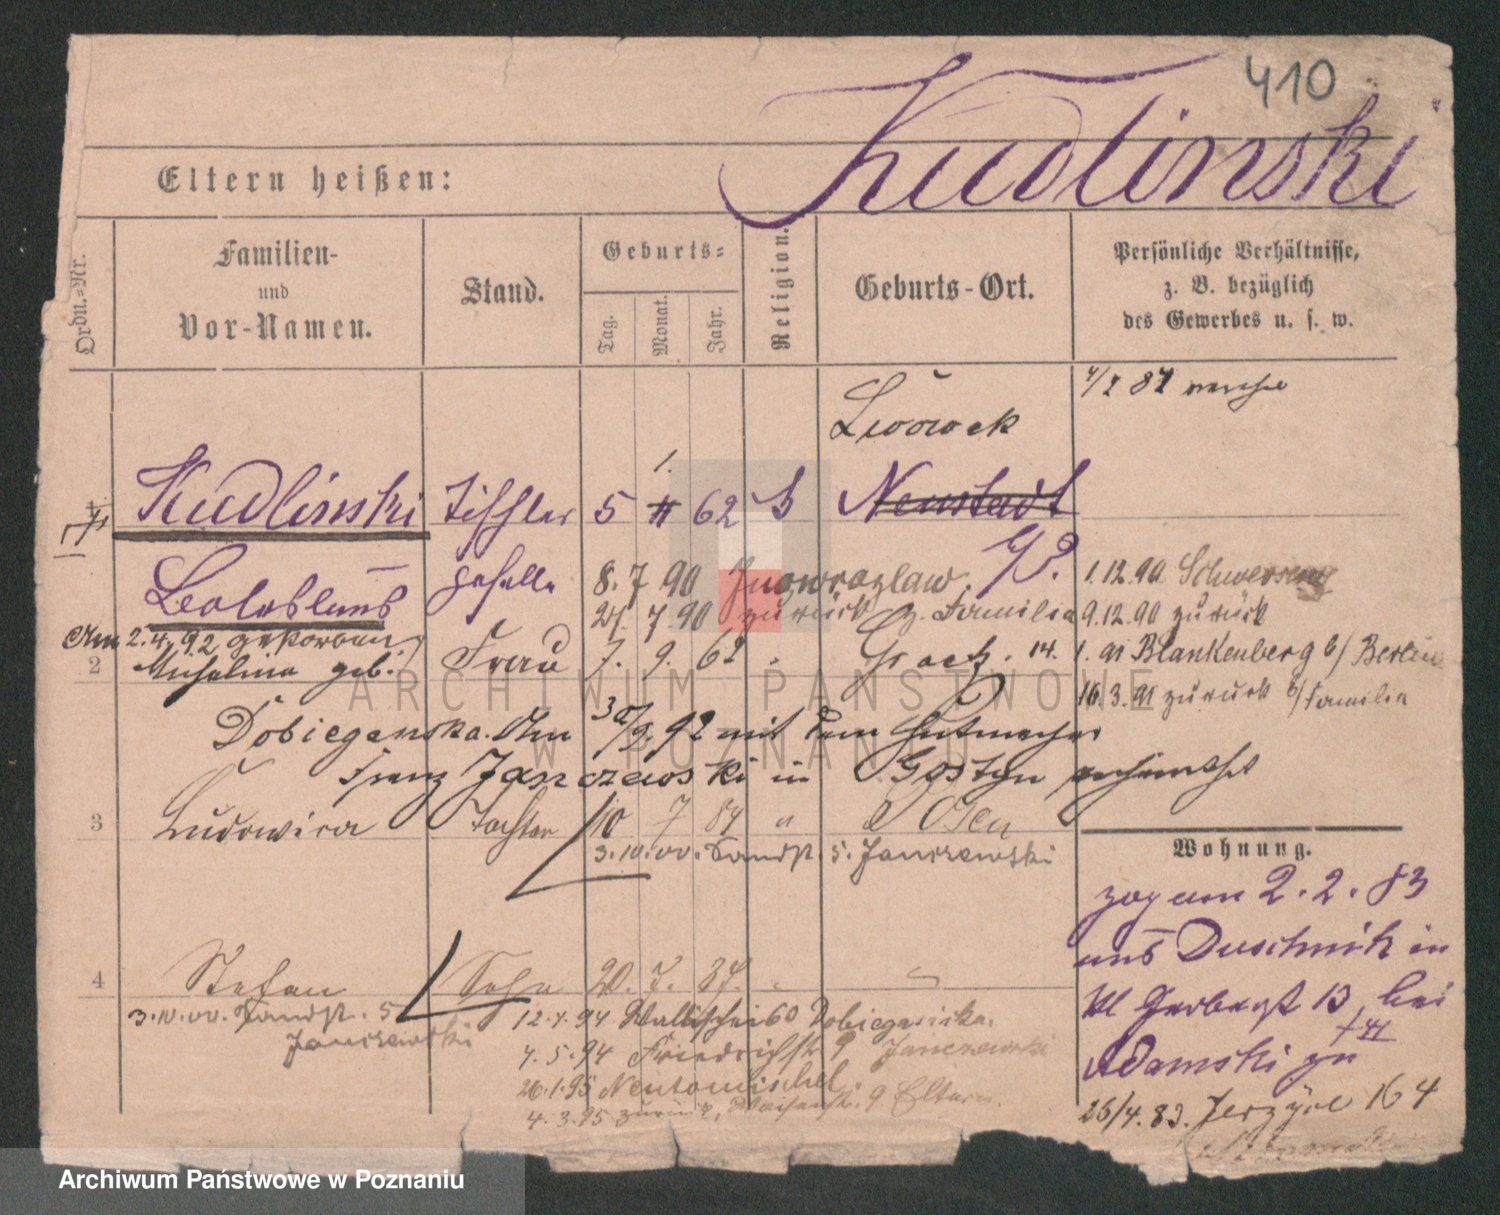 410
Kudlinski
Eltern heißen:
Ordn.-Nr.
Familien-
und
Vor-Namen.
Stand.
Geburts-
Tag.
Monat.
Jahr.
Religion.
Geburts-Ort.
Persönliche Verhältnisse,
z. B. bezüglich
des Gewerbes u. s. w.
Lwowek
1.
Kudlinski Tischler 5 62 Neustadt
Boleslaus geselle 8. 7 90 Inowrazlaw.
1.12.90 Schwersenz
24. 7.90 zurück z. Familie 9.12.90 zurück
Am 2.4.92 gestorben
2 Michalina geb. Frau 7. 9. 62 Graetz. 14. 1. 91 Blankenberg b/ Berlin
16.3.91 zurück z/ Familie
Dobieganska. Am 30/9. 92 mit dem Hutmacher
Franz Janczewski in Gostyn
3 Ludowica Tochter 10 7 84 " Posen
3.10.00. Sandstr. 5. Janczewski
Wohnung.
zog am 2.2.83
aus Duschnik in
Kl Gerberst 13 bei
Adamski zu
4 Stefan Sohn 20. 7. 87.
3.10.00. Sandstr. 5
Janczewski
12.4.94 Wallischei 60 Dobieganska.
4.5.94 Friedrichstr 9 Janczewski
26.1.95 Neutomischel.
4.3.95 zurück, 9 Eltern.
26/4.83. Jerzyce 164
ARCHIWUM PAŃSTWOWE
W POZNANIU
Archiwum Państwowe w Poznaniu